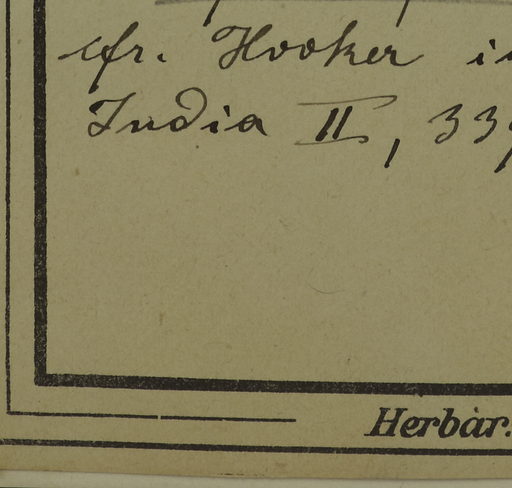 cfr. Hooker
India II, 33
Herbar.